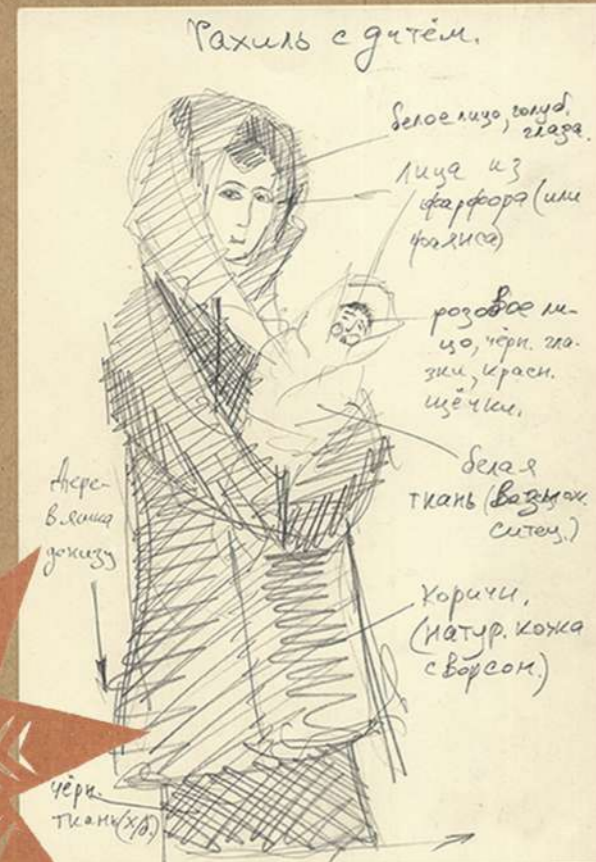 Рахиль с дитём.
белое лицо, голуб.
глаза.
лица из
фарфора (или
фаянса)
розовое ли-
цо, чёрн. гла-
зки, красн.
щёчки.
белая
ткань (
ситец.)
Дере-
вяшка
донизу
коричн.
(натур. кожа
с ворсом.)
чёрн.
ткань (х/б.)